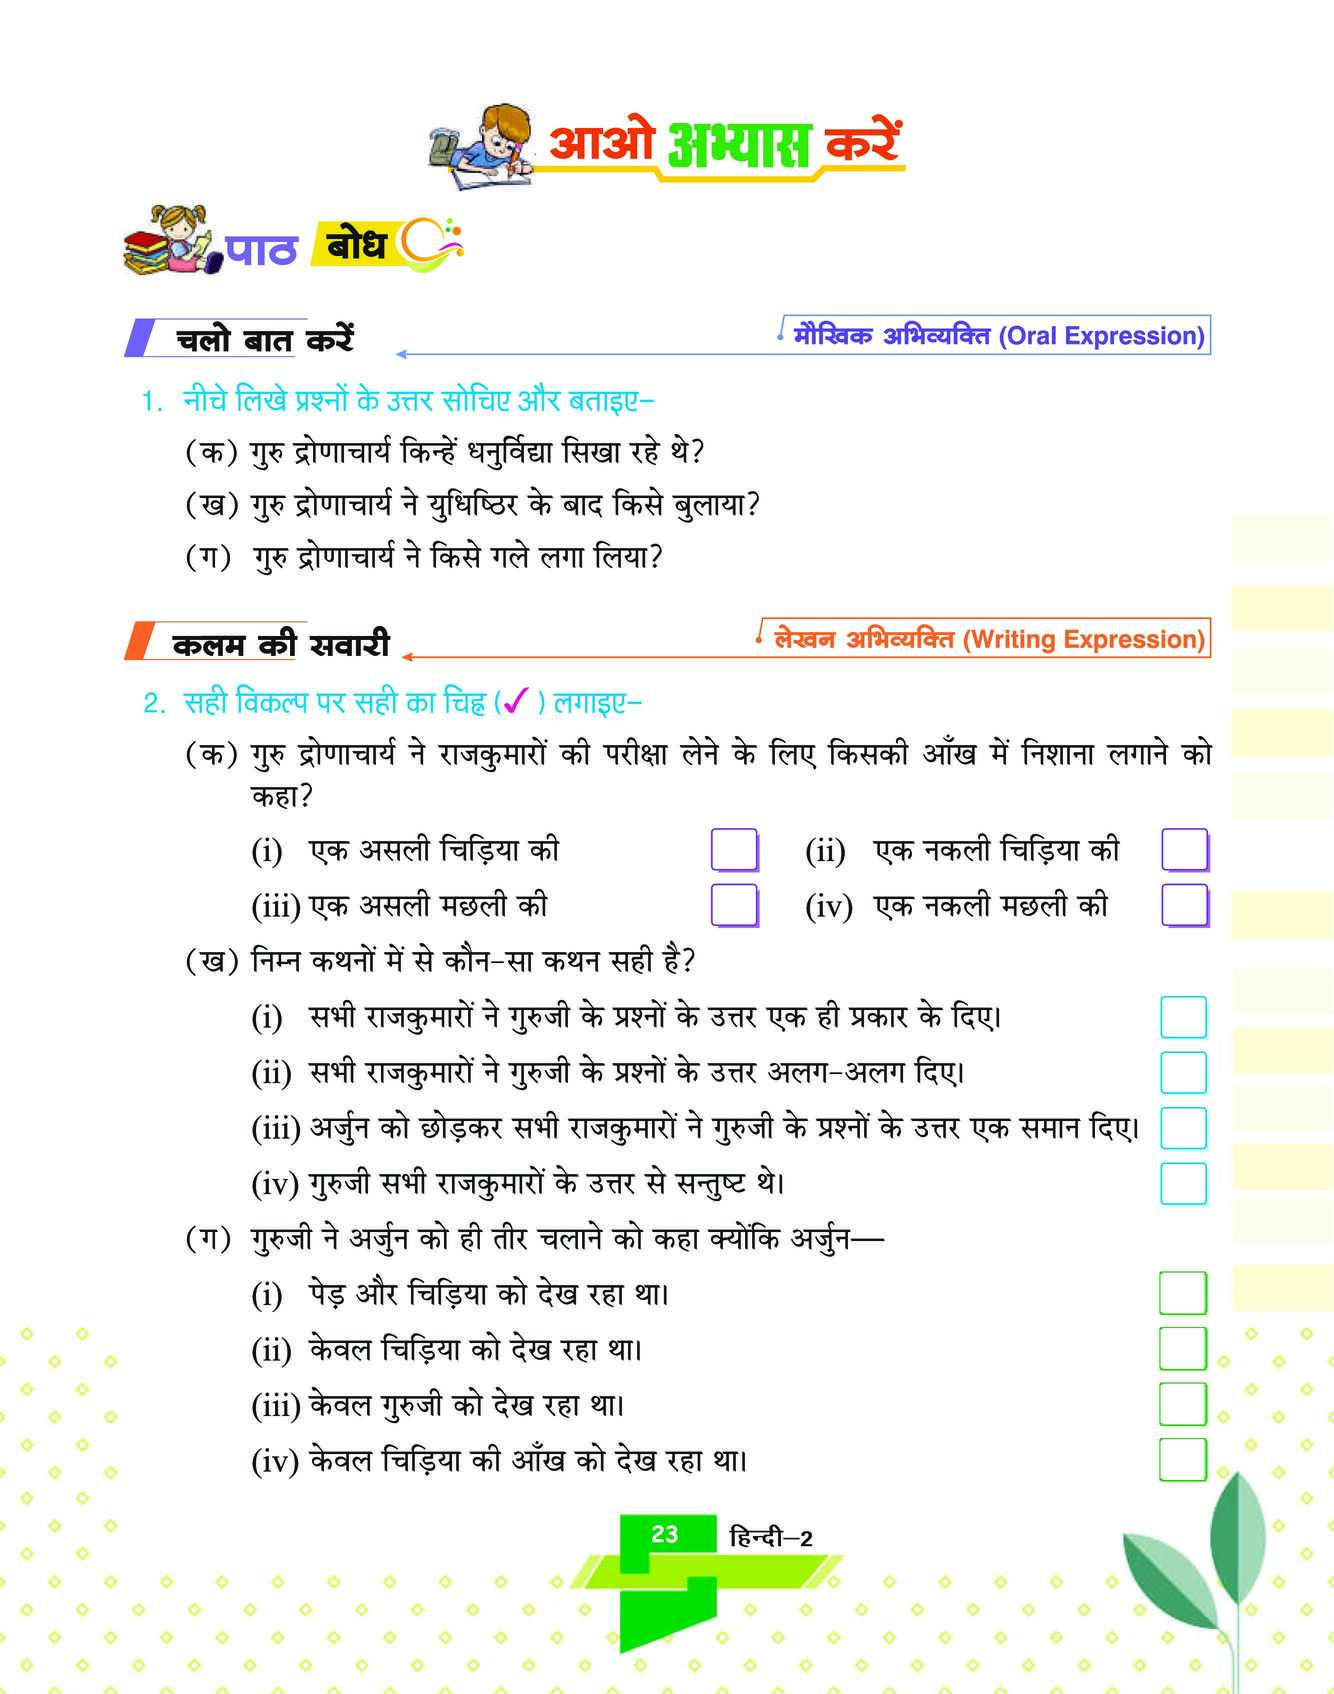 आओ अभ्यास करें
पाठ बोध
चलो बात करें
मौखिक अभिव्यक्ति (Oral Expression)
1. नीचे लिखे प्रश्नों के उत्तर सोचिए और बताइए–
(क) गुरु द्रोणाचार्य किन्हें धनुर्विद्या सिखा रहे थे?
(ख) गुरु द्रोणाचार्य ने युधिष्ठिर के बाद किसे बुलाया?
(ग) गुरु द्रोणाचार्य ने किसे गले लगा लिया?
कलम की सवारी
लेखन अभिव्यक्ति (Writing Expression)
2. सही विकल्प पर सही का चिह्न (✓) लगाइए–
(क) गुरु द्रोणाचार्य ने राजकुमारों की परीक्षा लेने के लिए किसकी आँख में निशाना लगाने को
कहा?
(i) एक असली चिड़िया की (ii) एक नकली चिड़िया की
(iii) एक असली मछली की (iv) एक नकली मछली की
(ख) निम्न कथनों में से कौन-सा कथन सही है?
(i) सभी राजकुमारों ने गुरुजी के प्रश्नों के उत्तर एक ही प्रकार के दिए।
(ii) सभी राजकुमारों ने गुरुजी के प्रश्नों के उत्तर अलग-अलग दिए।
(iii) अर्जुन को छोड़कर सभी राजकुमारों ने गुरुजी के प्रश्नों के उत्तर एक समान दिए।
(iv) गुरुजी सभी राजकुमारों के उत्तर से सन्तुष्ट थे।
(ग) गुरुजी ने अर्जुन को ही तीर चलाने को कहा क्योंकि अर्जुन—
(i) पेड़ और चिड़िया को देख रहा था।
(ii) केवल चिड़िया को देख रहा था।
(iii) केवल गुरुजी को देख रहा था।
(iv) केवल चिड़िया की आँख को देख रहा था।
23 हिन्दी–2